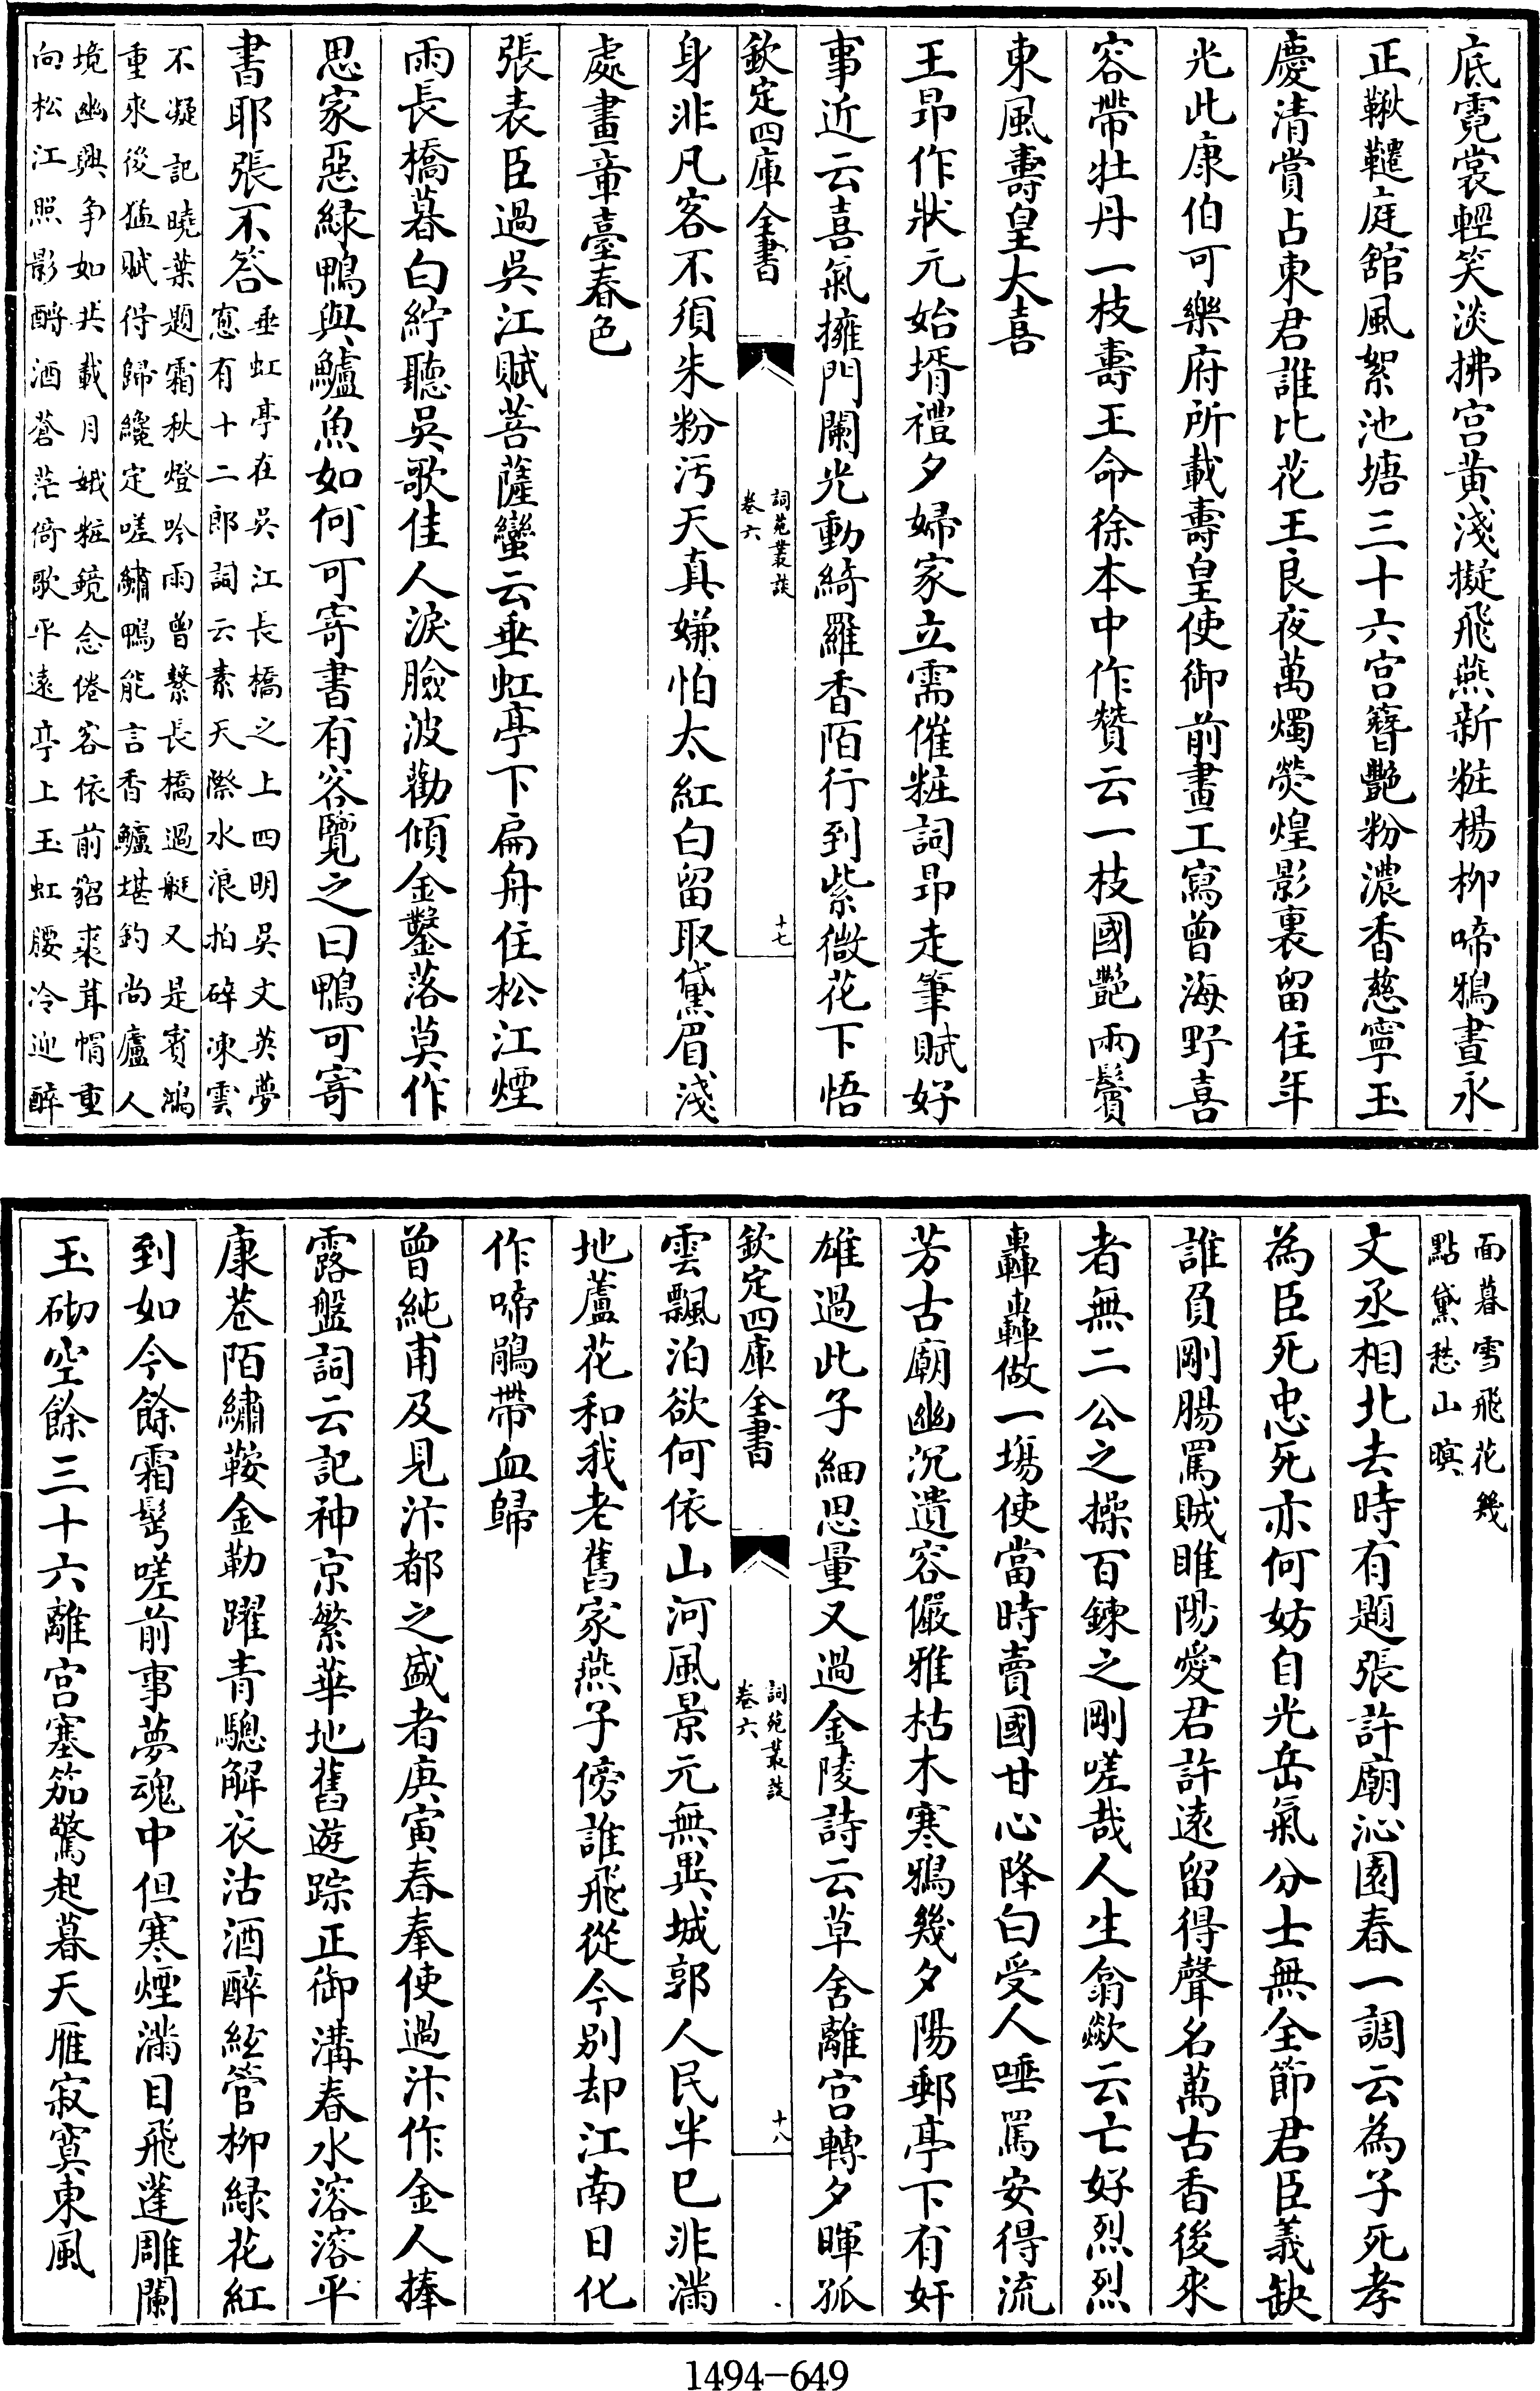 底霓裳輕笑淡拂宫黄淺擬飛燕新粧楊柳啼鴉晝永
正鞦韆庭舘風絮池塘三十六宫簪艶粉濃香慈寧玉
慶清賞占東君誰比花王良夜萬燭熒煌影裏留住年
光此康伯可樂府所載壽皇使御前畫工寫曾海野喜
容帶牡丹一枝壽王命徐本中作贊云一枝國艶兩鬢
東風壽皇大喜
王昂作狀元始壻禮夕婦家立需催粧詞昂走筆賦好
事近云喜氣擁門闌光動綺羅香陌行到紫微花下悟
欽定四庫全書
詞苑叢談
卷六
十七
身非凡客不須朱粉汚天真嫌怕太紅白留取黛眉淺
處畫章臺春色
張表臣過吳江賦菩薩蠻云垂虹亭下扁舟住松江煙
雨長橋暮白紵聽吳歌佳人淚臉波勸傾金鑿落莫作
思家惡緑鴨與鱸魚如何可寄書有客覽之曰鴨可寄
書耶張不答
垂虹亭在吳江長橋之上四明吳文英夢
窻有十二郎詞云素天際水浪拍碎凍雲
不凝記曉葉題霜秋燈吟雨曾繫長橋過艇又是賓鴻
重來後猛賦得歸纔定嗟繡鴨能言香鱸堪釣尚廬人
境幽興争如共載月娥粧鏡念倦客依前貂裘茸帽重
向松江照影酹酒蒼茫倚歌平遠亭上玉虹腰冷迎醉
面暮雪飛花幾
點黛愁山暝
文丞相北去時有題張許廟沁園春一調云為子死孝
為臣死忠死亦何妨自光岳氣分士無全節君臣義缺
誰負剛腸罵賊睢陽愛君許遠留得聲名萬古香後來
者無二公之操百鍊之剛嗟哉人生翕歘云亡好烈烈
轟轟做一塲使當時賣國甘心降白受人唾罵安得流
芳古廟幽沉遺容儼雅枯木寒鴉幾夕陽郵亭下有奸
雄過此子細思量又過金陵詩云草舍離宫轉夕暉孤
欽定四庫全書
詞苑叢談
卷六
十八
雲飄泊欲何依山河風景元無異城郭人民半已非滿
地蘆花和我老舊家燕子傍誰飛從今别却江南日化
作啼鵑帶血歸
曾純甫及見汴都之盛者庚寅春奉使過汴作金人捧
露盤詞云記神京繁華地舊遊踪正御溝春水溶溶平
康巷陌繡鞍金勒躍青驄解衣沽酒醉絃管柳緑花紅
到如今餘霜鬂嗟前事夢魂中但寒煙滿目飛蓬雕闌
玉砌空餘三十六離宫塞笳驚起暮天雁寂寞東風
1494-649